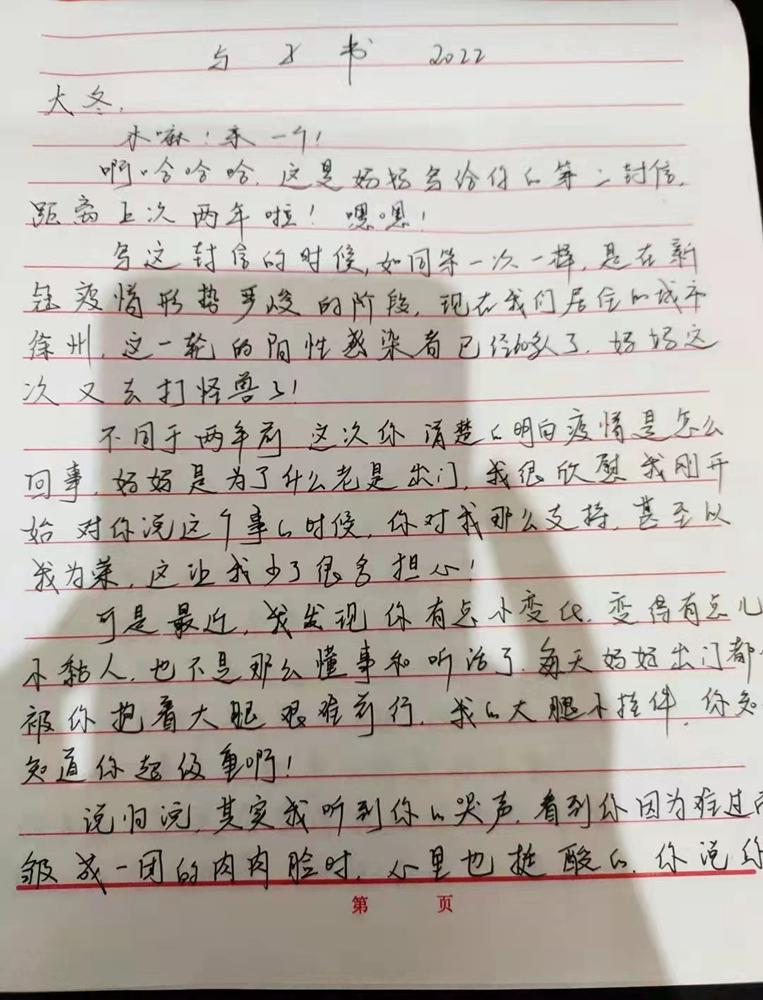 与子书 2022
大冬,
木嘛!来一个!
啊哈哈哈,这是妈妈写给你的第二封信,
距离上次两年啦!嗯嗯!
写这封信的时候,如同第一次一样,是在新
冠疫情形势严峻的阶段,现在我们居住的城市
徐州,这一轮的阳性感染者已经够多了,妈妈这
次又去打怪兽了!
不同于两年前 这次你清楚的明白疫情是怎么
回事,妈妈是为了什么老是出门,我很欣慰我刚开
始对你说这个事的时候,你对我那么支持,甚至以
我为荣,这让我少了很多担心!
可是最近,我发现你有点小变化,变得有点儿
小黏人,也不是那么懂事和听话了,每天妈妈出门都
被你抱着大腿艰难前行,我的大腿小挂件,你知
知道你超级重啊!
说归说,其实我听到你的哭声,看到你因为难过而
皱成一团的肉肉脸时,心里也挺酸的,你说你
第 页